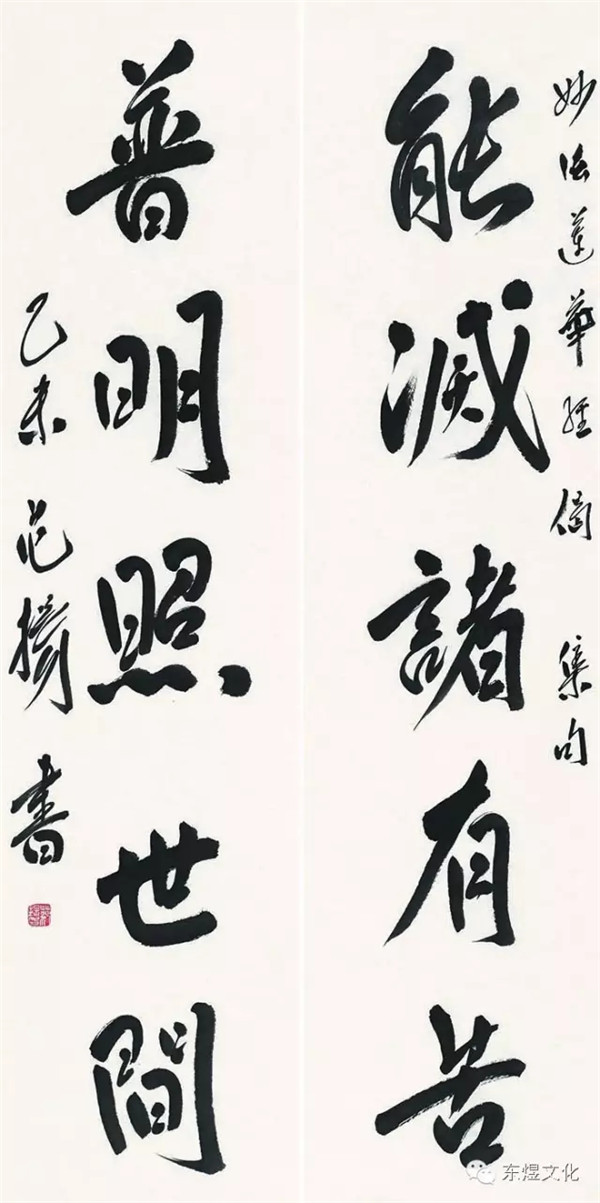 妙法莲華經偈 集句
能滅諸有苦
普明照世間
乙未范揚書
东煜文化